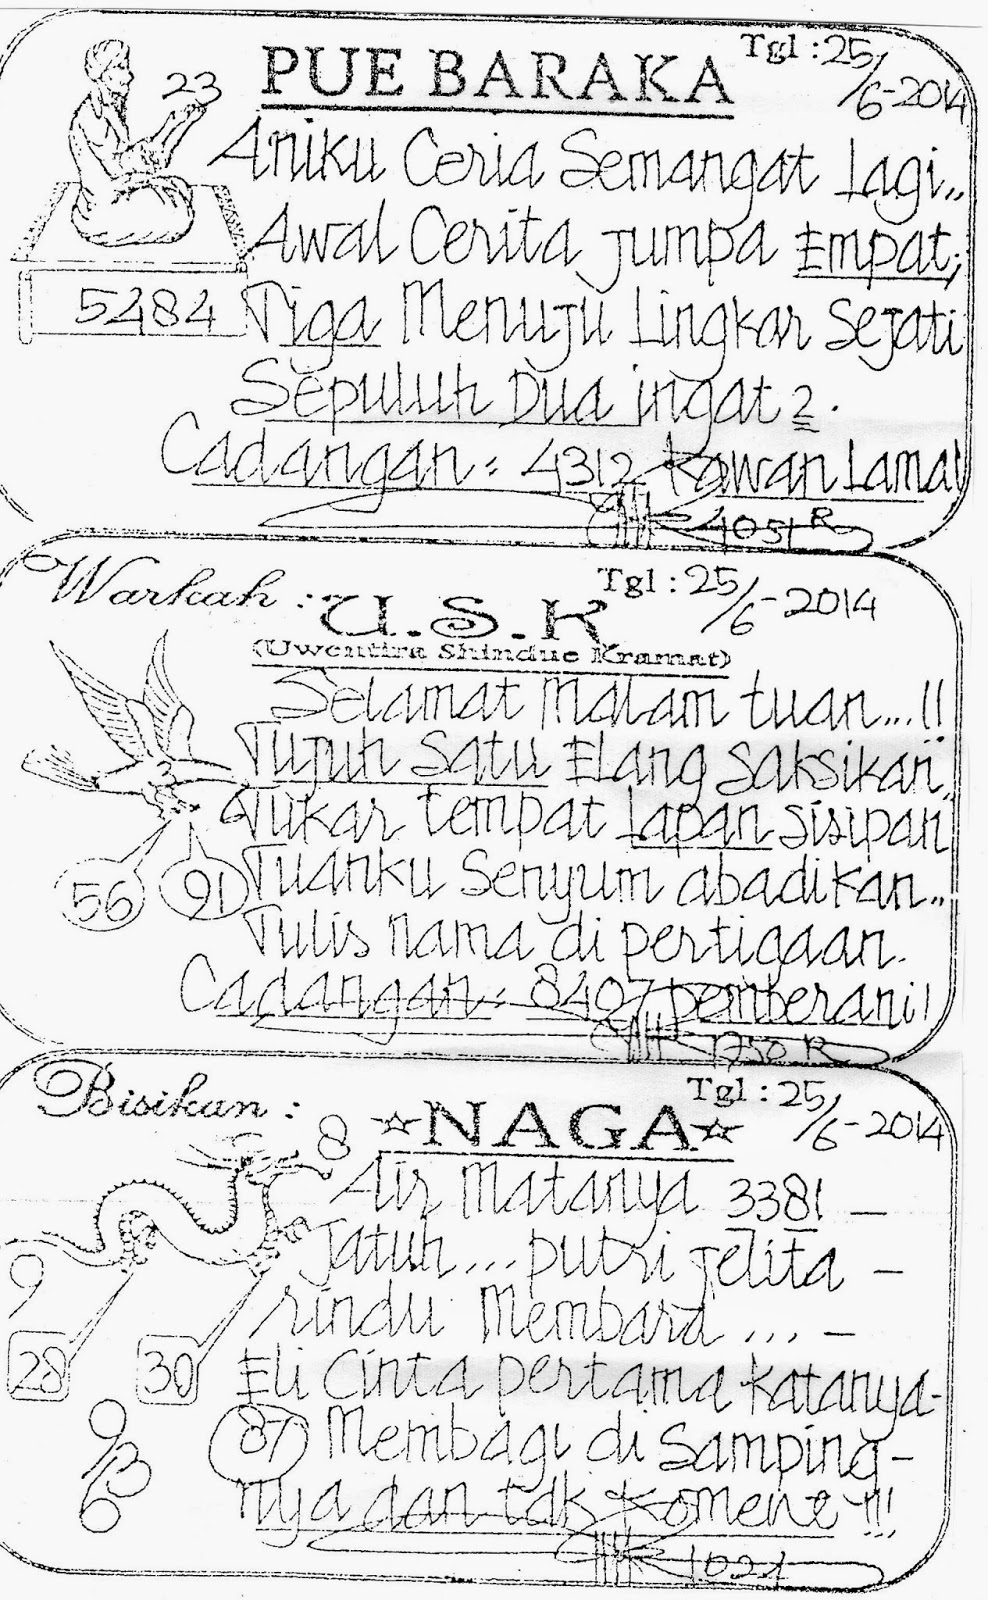 PUE BARAKA
Tgl : 25/6-2014
23
Aniku Ceria Semangat Lagi..
Awal Cerita jumpa Empat;
5484 Tiga Menuju Lingkar Sejati
Sepuluh Dua ingat 2.
Cadangan : 4312 Kawan Lama!
4051 R
Warkah : U.S.K
Tgl : 25/6-2014
(Uwentira Shindue Kramat)
Selamat Malam tuan...!!
Tujuh Satu Elang Saksikan..
Tukar tempat Lapan Sisipan
56 91 Tuanku Senyum abadikan..
Tulis nama di pertigaan.
Cadangan : 8407 pemberani!
1750 R
Bisikan : ☆NAGA☆
Tgl : 25/6-2014
8
Air Matanya 3381 –
Jatuh... putri jelita –
9
rindu Membara ... –
28 30 Eli Cinta pertama katanya-
87 Membagi di Samping-
9/3
6
nya dan tdk koment !!!
1021